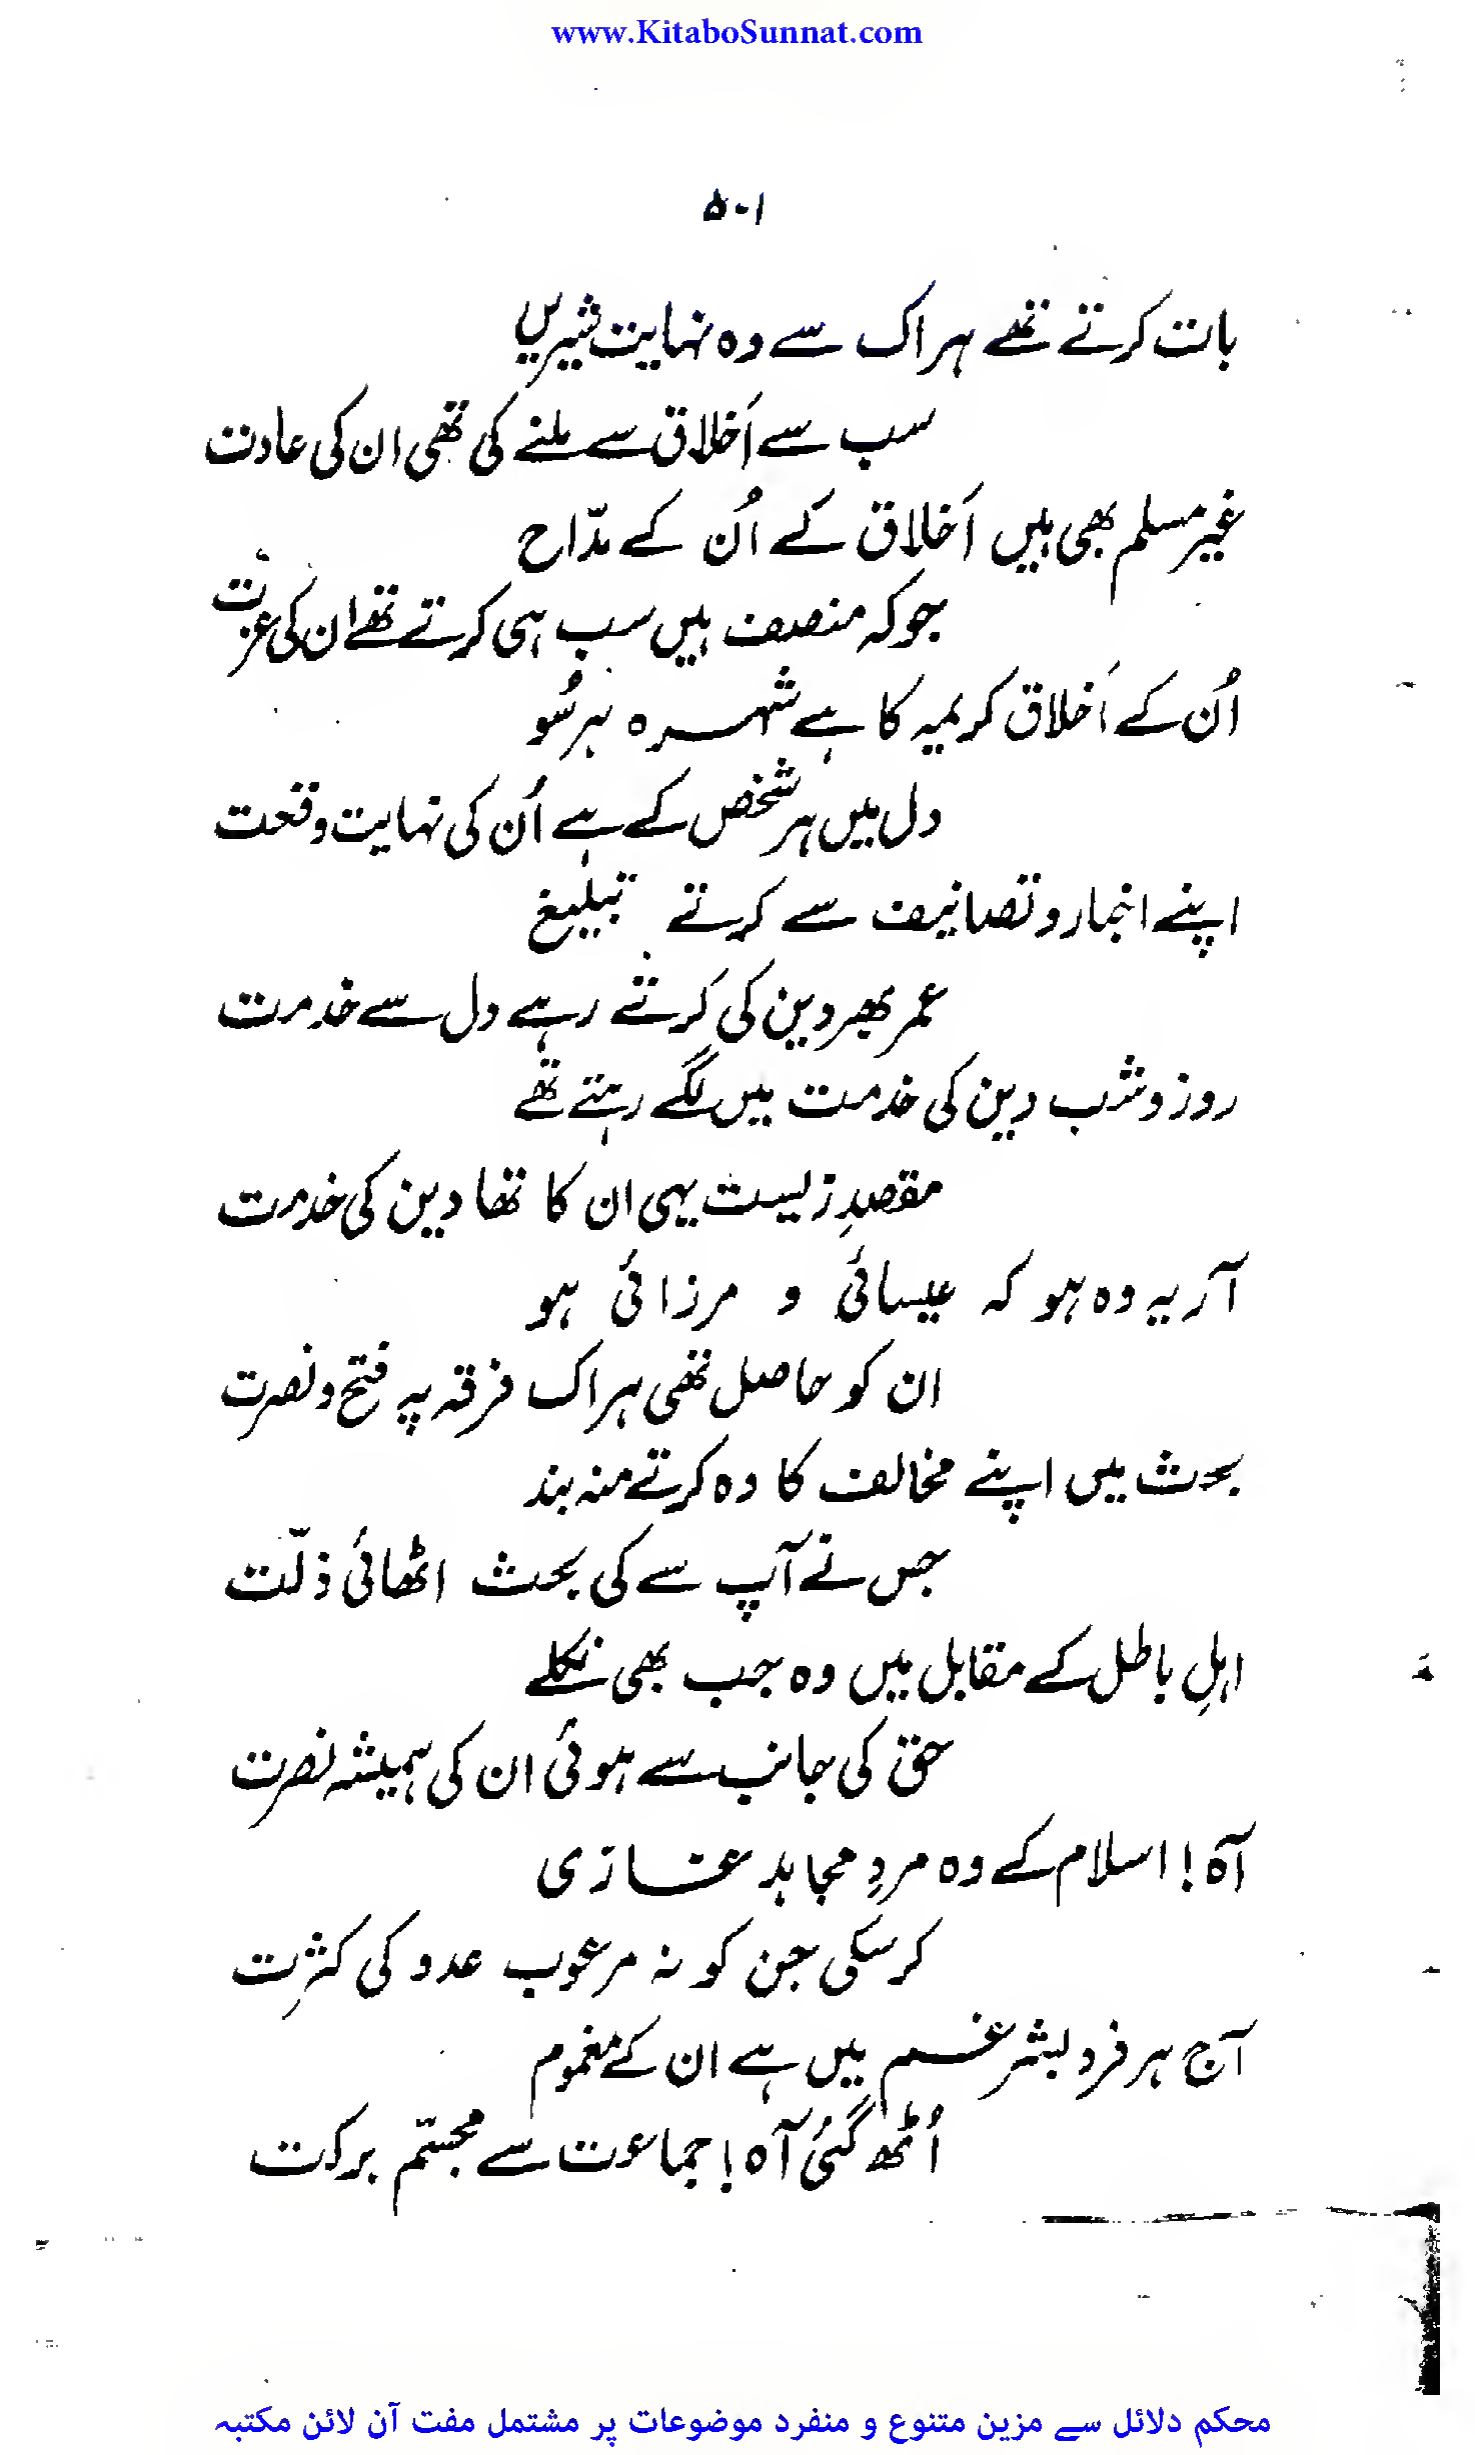 www.KitaboSunnat.com
۵۰۱
بات کرتے تھے ہر اک سے وہ نہایت شیریں
سب سے اَخلاق سے ملنے کی تھی ان کی عادت
غیر مسلم بھی ہیں اَخلاق کے اُن کے مدّاح
جو کہ منصف ہیں سب ہی کرتے تھے ان کی عزت
اُن کے اَخلاق کریمہ کا ہے شہرہ ہر سُو
دل میں ہر شخص کے ہے اُن کی نہایت وقعت
اپنے اخبار و تصانیف سے کرتے تبلیغ
عمر بھر دین کی کرتے رہے دل سے خدمت
روز و شب دین کی خدمت میں لگے رہتے تھے
مقصدِ زیست یہی ان کا تھا دین کی خدمت
آریہ وہ ہو کہ عیسائی و مرزائی ہو
ان کو حاصل تھی ہر اک فرقہ پہ فتح و نصرت
بحث میں اپنے مخالف کا وہ کرتے منہ بند
جس نے آپ سے کی بحث اٹھائی ذلّت
اہلِ باطل کے مقابل میں وہ جب بھی نکلے
حق کی جانب سے ہوئی ان کی ہمیشہ نصرت
آہ! اسلام کے وہ مردِ مجاہد غازی
کر سکی جن کو نہ مرعوب عدو کی کثرت
آج ہر فرد بشر غم میں ہے ان کے مغموم
اُٹھ گئی آہ! جماعت سے مجسّم برکت
محکم دلائل سے مزین متنوع و منفرد موضوعات پر مشتمل مفت آن لائن مکتبہ